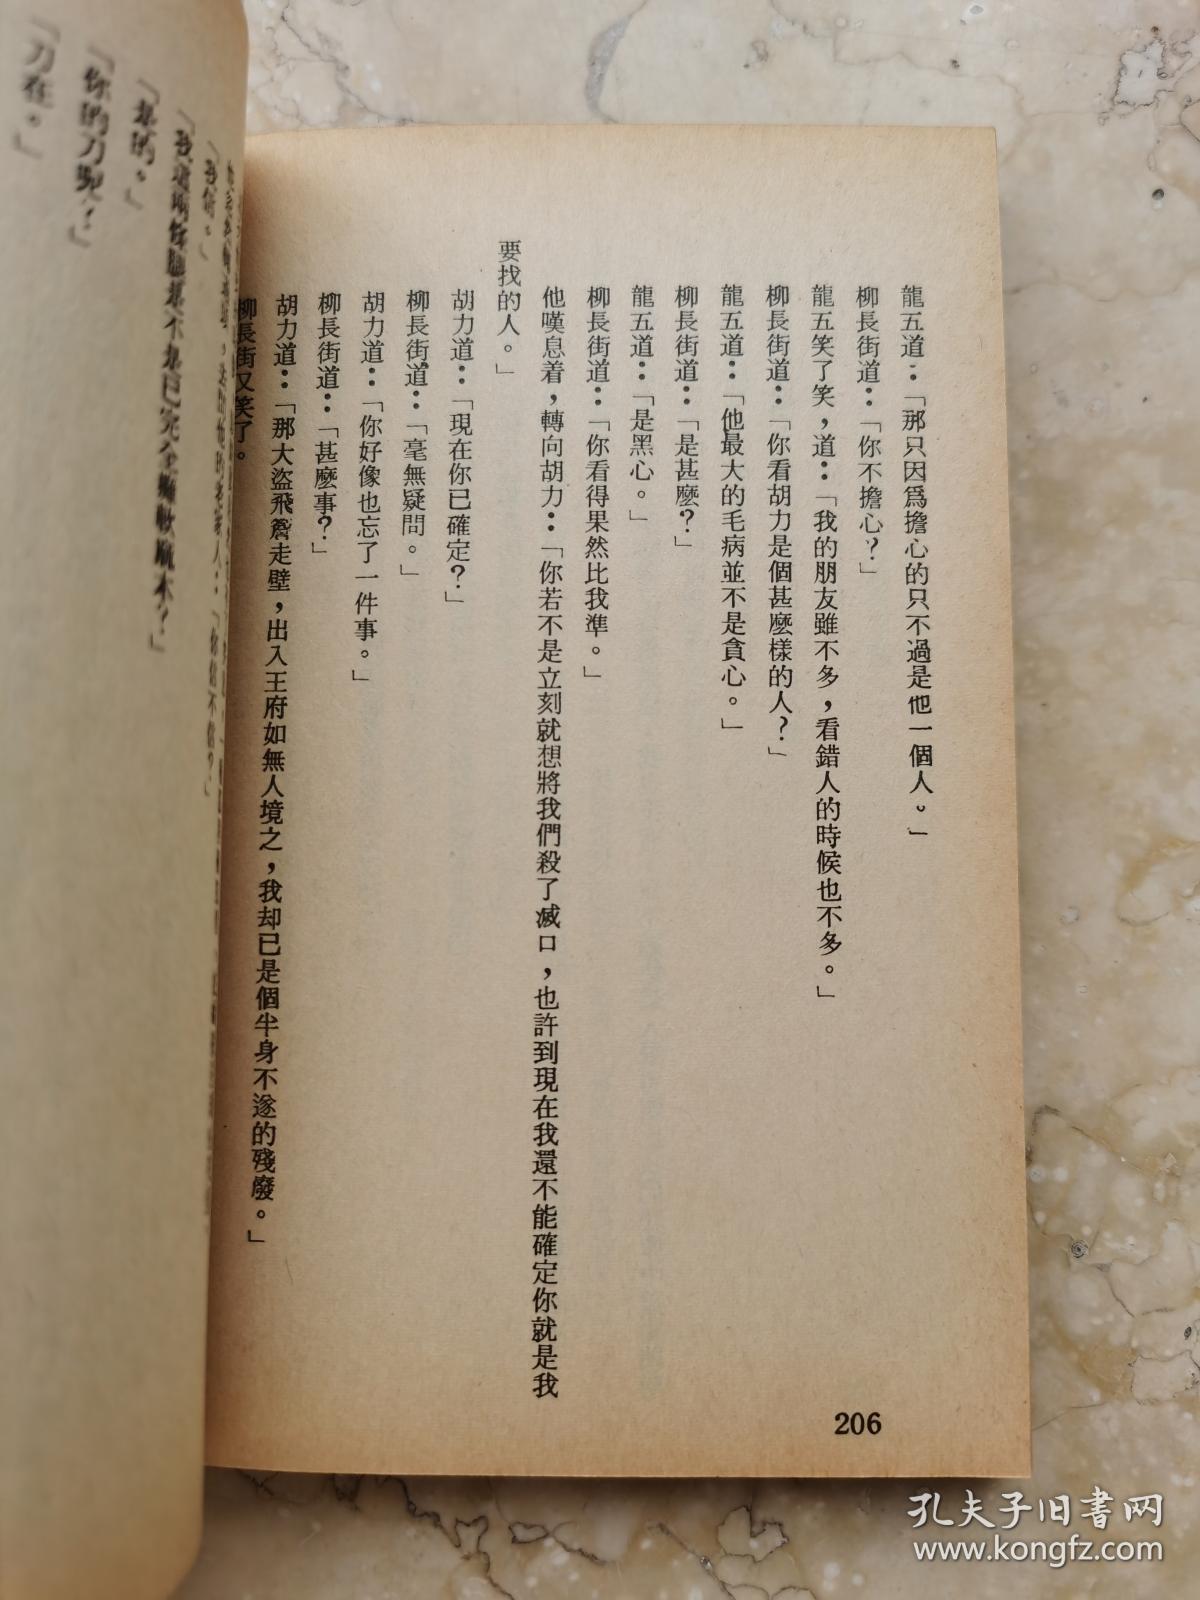 龍五道：「那只因爲擔心的只不過是他一個人。」
柳長街道：「你不擔心？」
龍五笑了笑，道：「我的朋友雖不多，看錯人的時候也不多。」
柳長街道：「你看胡力是個甚麼樣的人？」
龍五道：「他最大的毛病並不是貪心。」
柳長街道：「是甚麼？」
龍五道：「是黑心。」
柳長街道：「你看得果然比我準。」
他嘆息着，轉向胡力：「你若不是立刻就想將我們殺了滅口，也許到現在我還不能確定你就是我
要找的人。」
胡力道：「現在你已確定？」
柳長街道：「毫無疑問。」
胡力道：「你好像也忘了一件事。」
柳長街道：「甚麼事？」
胡力道：「那大盜飛簷走壁，出入王府如無人境之，我却已是個半身不遂的殘廢。」
柳長街又笑了。
206
「是的。」
「你的刀呢？」
「刀在。」
孔夫子旧書网
www.kongfz.com